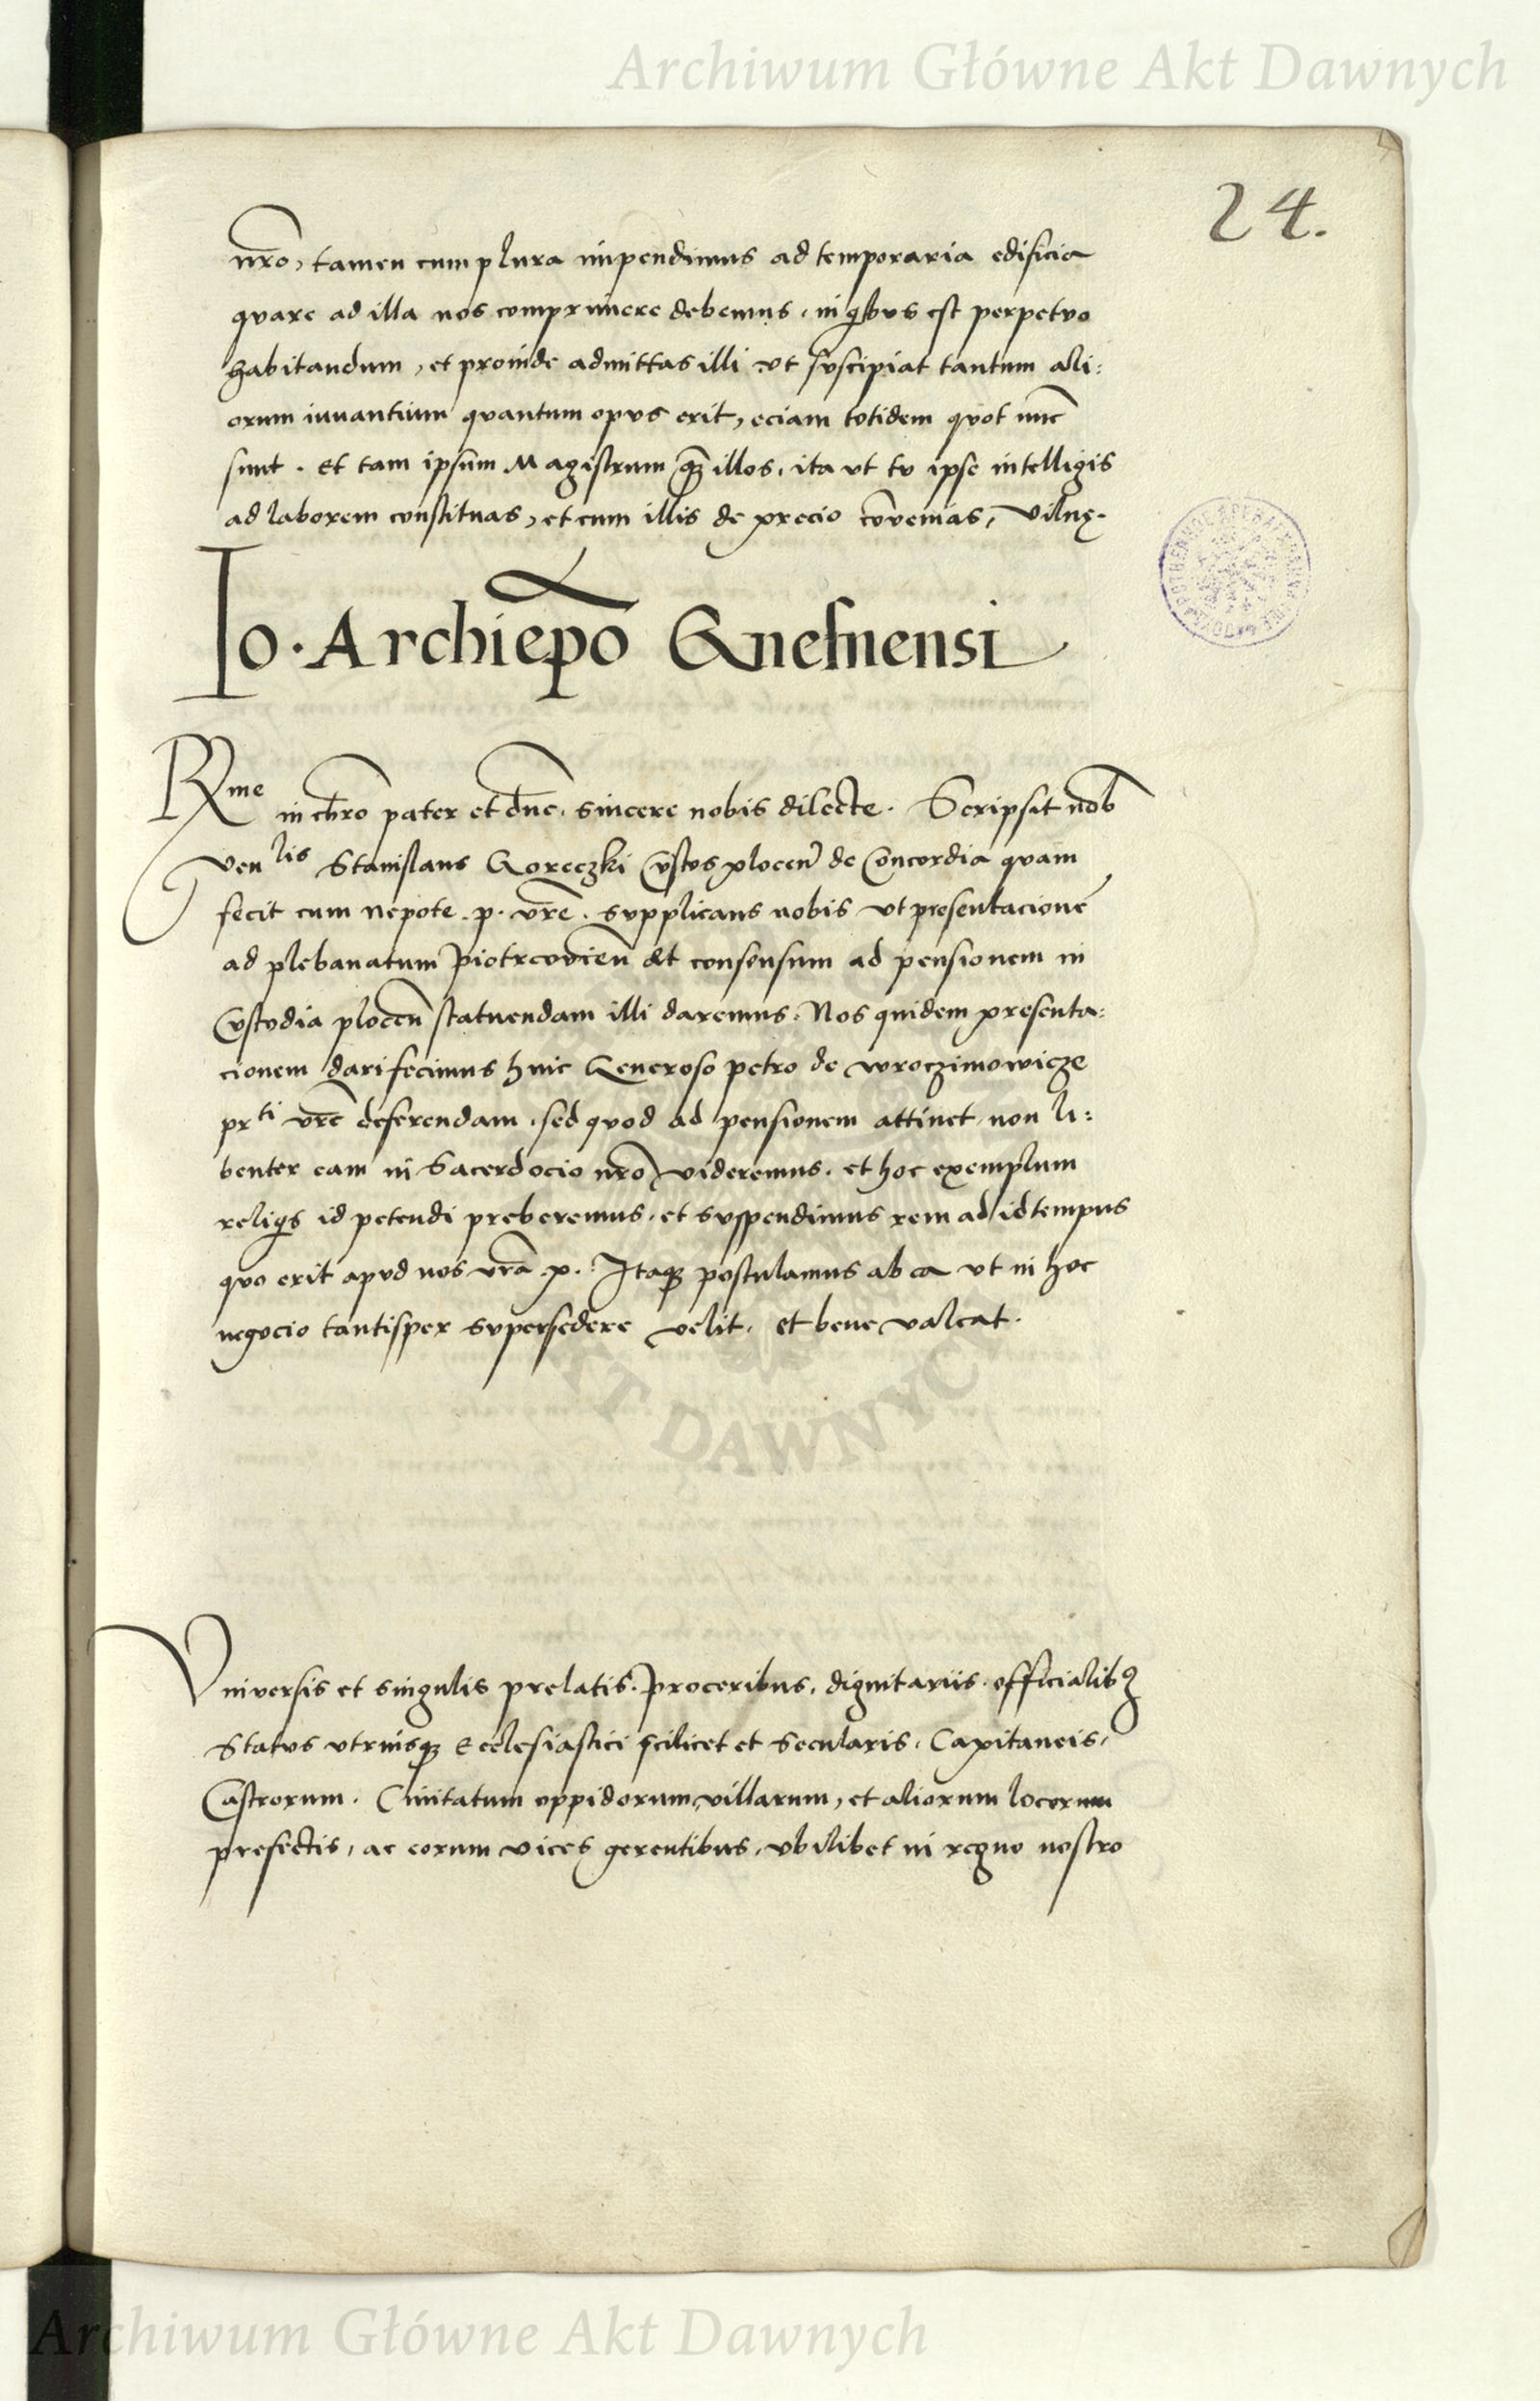 Archiwum Główne Akt Dawnych
24.
nr̃o, tamen cum plura impendimus ad temporaria edificia
quare ad illa nos comprimere debemus, in q̃bus est perpetuo
habitandum, et proinde admittas illi ut suscipiat tantum ali:
orum iuuantium quantum opus erit, eciam totidem quot nũc
sunt. Et tam ipsum Magistrum q̃ illos, ita ut tu ipse intelligis
ad laborem constituas, et cum illis de precio cõuenias, Vilnę.
Io. Archiep̃o Gnesnensi
Rme in chr̃o pater et dñe, sincere nobis dilecte. Scripsit nob̃
Venlis Stanislaus Goreczki Custos plocen̄ de Concordia quam
fecit cum nepote .p. vr̃e. supplicans nobis ut presentacionẽ
ad plebanatum Piotrcovien̄ et consensum ad pensionem in
Custodia plocen̄ statuendam illi daremus. Nos quidem presenta:
cionem dari fecimus huic Generoso petro de wroczimowicze
prti vr̃e deferendam, sed quod ad pensionem attinet, non li:
benter eam in Sacerdocio nr̃o videremus, et hoc exemplum
reliq̃s id petendi preberemus, et suspendimus rem ad id tempus
quo erit apud nos vr̃a .p. Itaq; postulamus ab ea ut in hoc
negocio tantisper supersedere velit, et bene valeat.
AKT DAWNYCH
Vniversis et singulis prelatis. Proceribus, dignitariis, officialibꝫ
Status utriusq; Ecclesiastici scilicet et Secularis, Capitaneis,
Castrorum. Ciuitatum oppidorum, villarum, et aliorum locorum
prefectis, ac eorum vices gerentibus, ubilibet in regno nostro
Archiwum Główne Akt Dawnych